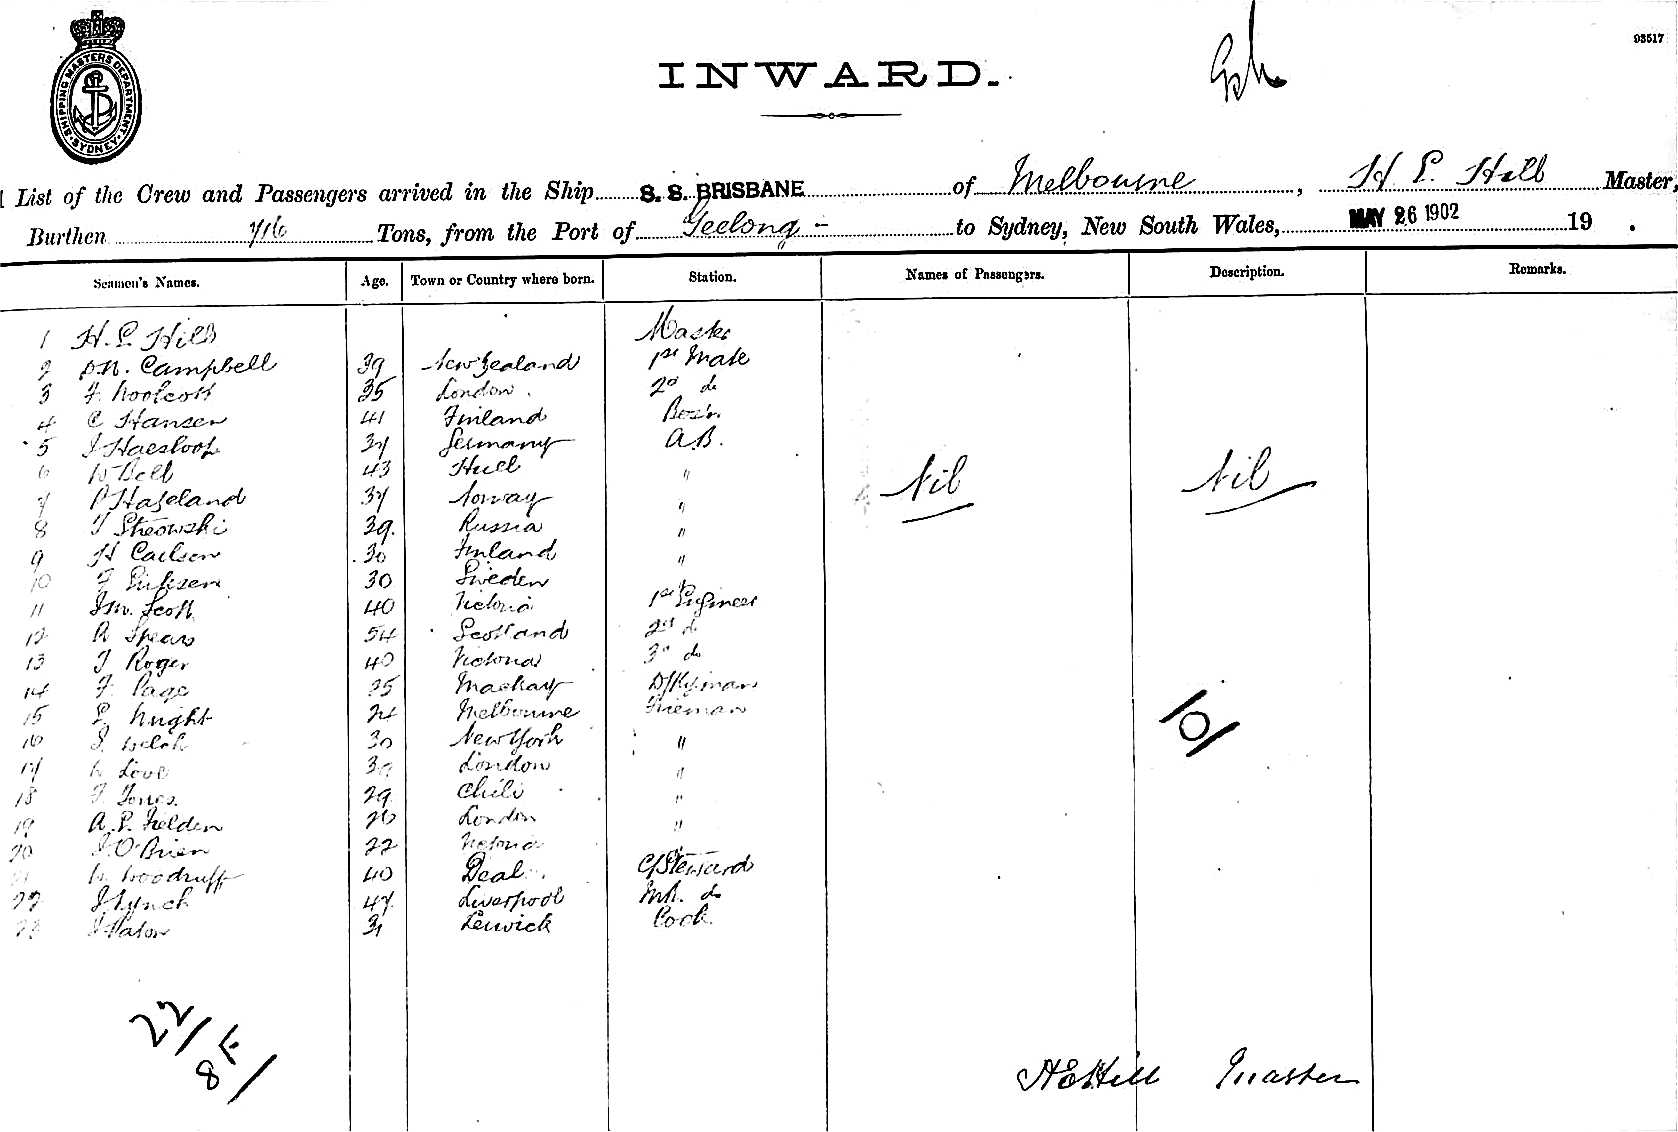 93517
SHIPPING MASTERS DEPARTMENT SYDNEY
INWARD.
List of the Crew and Passengers arrived in the Ship S. S. BRISBANE of Melbourne, H E Hill Master,
Burthen 716 Tons, from the Port of Geelong - to Sydney, New South Wales, MAY 26 1902 19 .
Seamen's Names. Age. Town or Country where born. Station. Names of Passengers. Description. Remarks.
1 H. E. Hill Master
2 Campbell 39 New Zealand 1st Mate
3 F. Woolcott 35 London. 2d do
4 C Hansen 41 Finland Bosn.
5 Haesloop 37 Germany A.B.
6 W Bell 43 Hull "
7 Haseland 37 Norway "
8 39. Russia "
9 H Carlsen 30 Finland "
10 F 30 Sweden
11 Jm. Scott 40 Victoria 1st Engineer
12 R Spears 54 Scotland 2nd d
13 J Roger 40 Victoria 3d do
14 F. Page 25 Mackay D/kyman
15 E. Wright 24 Melbourne Fireman
16 Welch 30 New York "
17 W Love London "
18 Jones. 29 Chili "
19 A. E. Fielden 26 London "
20 J. O'Brien 22 Victoria "
W. Woodruff 40 Deal C/Steward
22 J Lynch 47 Liverpool do
J Paton 31 Lerwick Cook
Nil Nil
/0/
22/
8F/
H E Hill Master